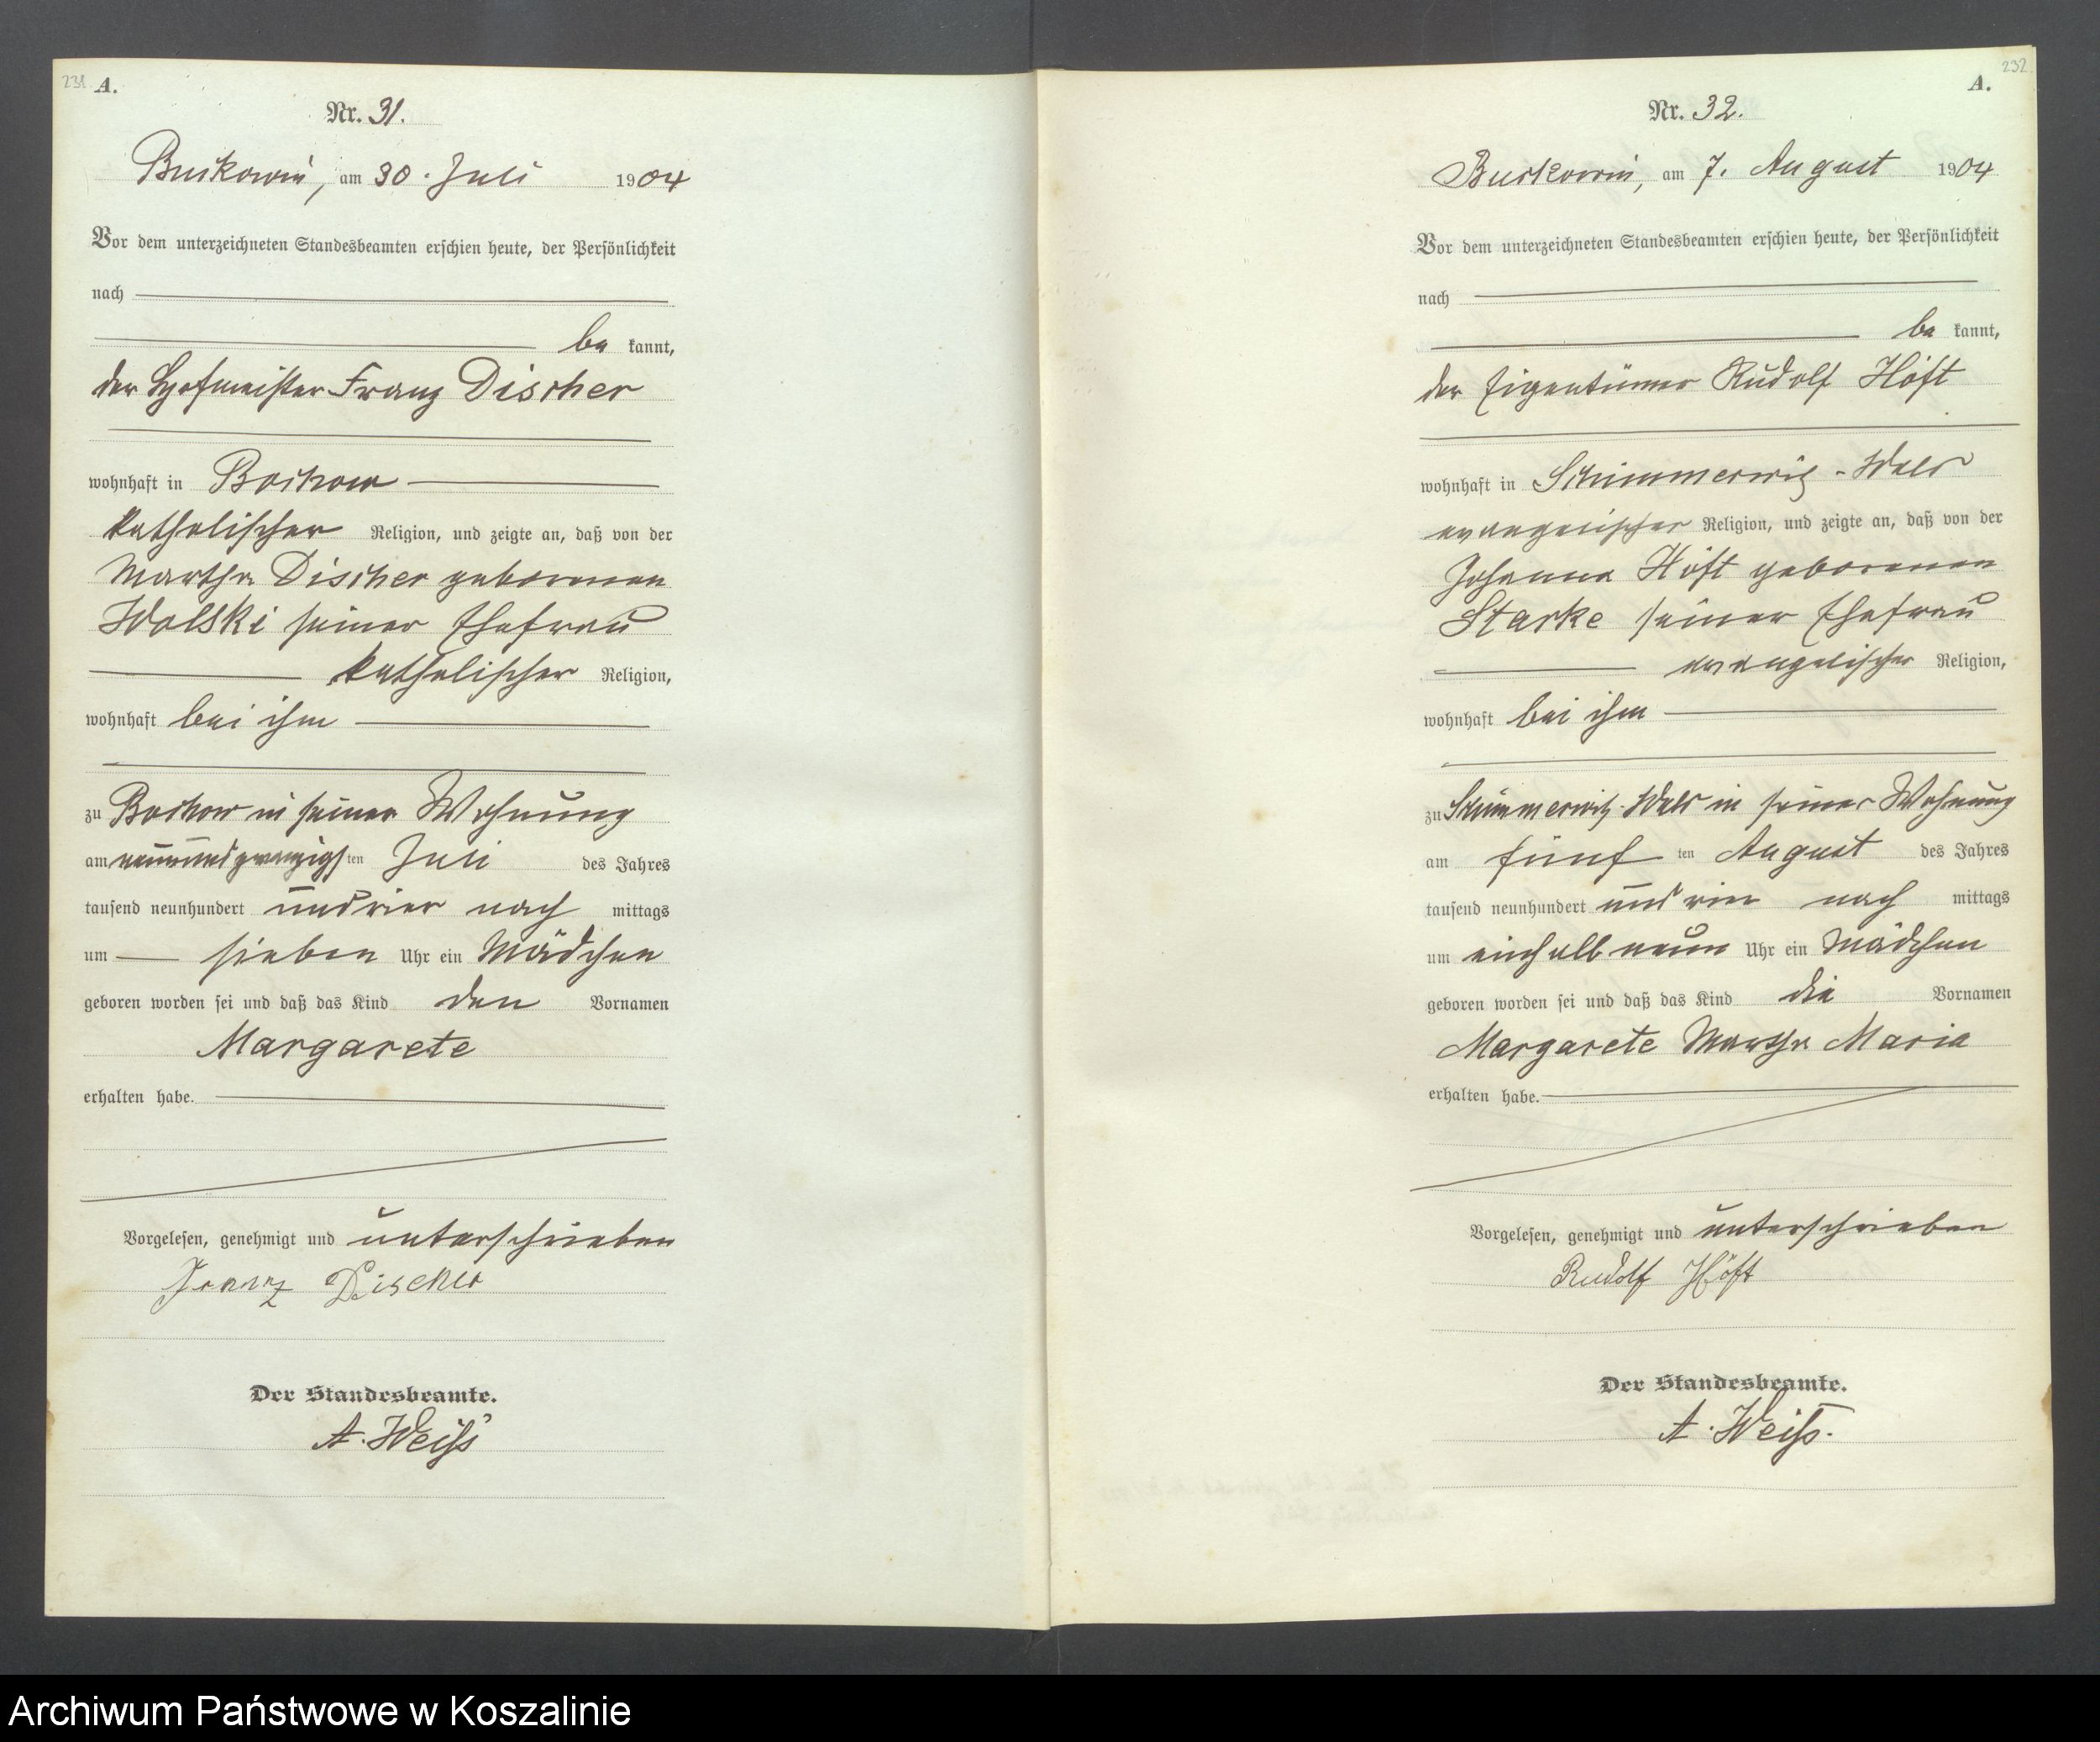 231 A.
Nr. 31.
Buckowin, am 30. Juli 1904
Vor dem unterzeichneten Standesbeamten erschien heute, der Persönlichkeit
nach
be kannt,
der Hofmeister Franz Discher
wohnhaft in Bochow
katholischer Religion, und zeigte an, daß von der
Martha Discher geborenen
Wolski seiner Ehefrau
katholischer Religion,
wohnhaft bei ihm
zu Bochow in seiner Wohnung
am neunundzwanzigsten Juli des Jahres
tausend neunhundert und vier nach mittags
um sieben Uhr ein Mädchen
geboren worden sei und daß das Kind den Vornamen
Margarete
erhalten habe.
Vorgelesen, genehmigt und unterschrieben
Franz Discher
Der Standesbeamte.
A. Weiß
A. 232
Nr. 32.
Buckowin, am 7. August 1904
Vor dem unterzeichneten Standesbeamten erschien heute, der Persönlichkeit
nach
be kannt,
der Eigentümer Rudolf Höft
wohnhaft in Schimmerwitz-Wald
evangelischer Religion, und zeigte an, daß von der
Johanna Höft geborenen
Starke seiner Ehefrau
evangelischer Religion,
wohnhaft bei ihm
zu Schimmerwitz-Wald in seiner Wohnung
am fünf ten August des Jahres
tausend neunhundert und vier nach mittags
um einhalb neun Uhr ein Mädchen
geboren worden sei und daß das Kind die Vornamen
Margarete Martha Maria
erhalten habe.
Vorgelesen, genehmigt und unterschrieben
Rudolf Höft
Der Standesbeamte.
A. Weiß.
Archiwum Państwowe w Koszalinie